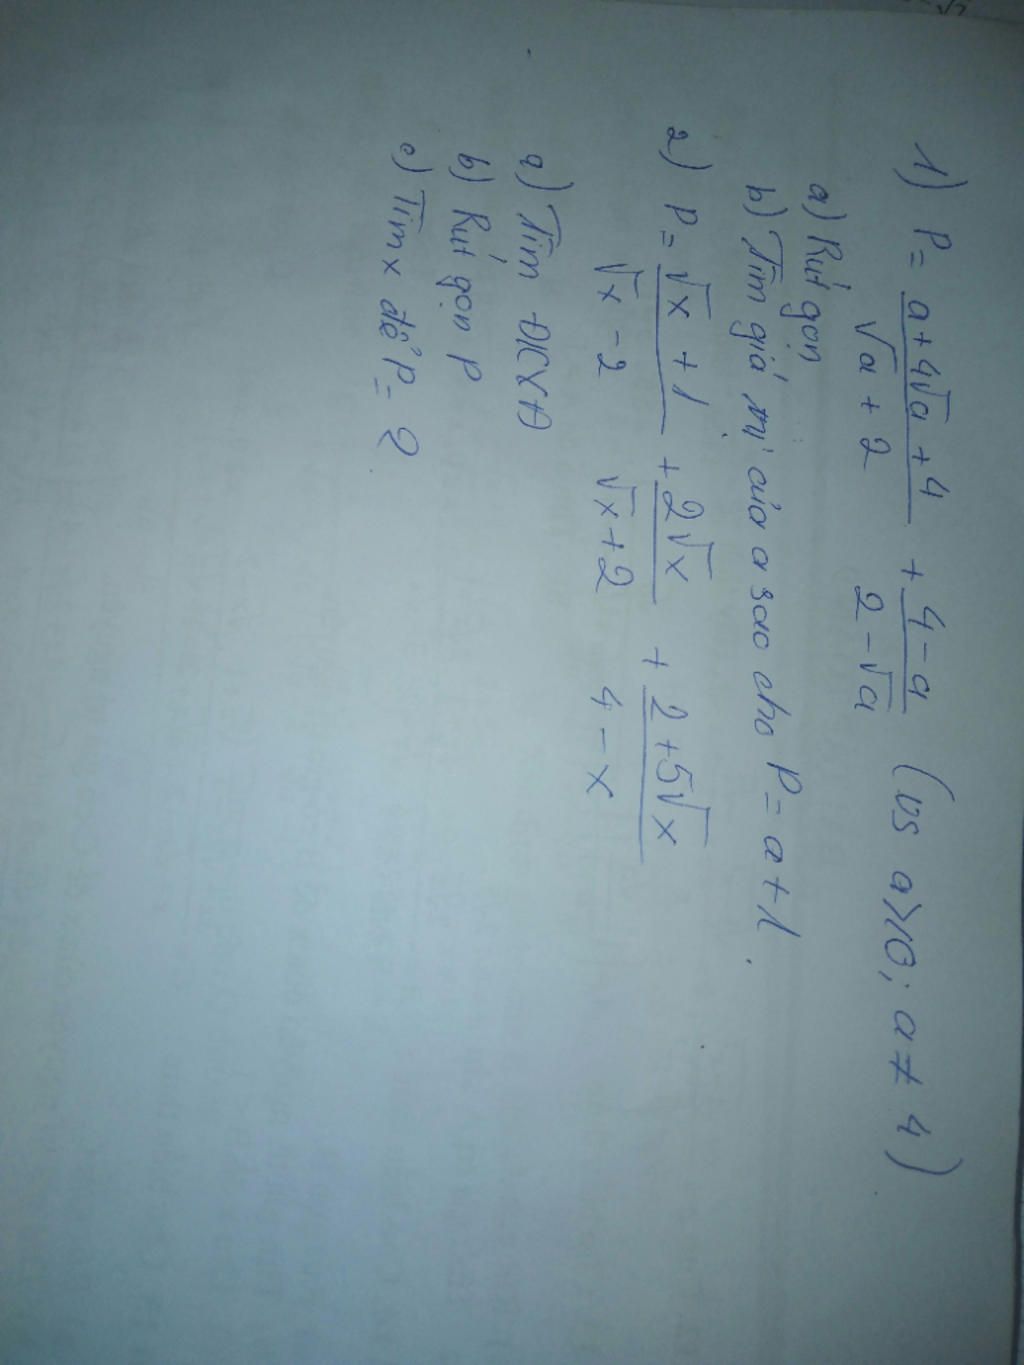 1) P = \frac{a+4\sqrt{a}+4}{\sqrt{a}+2} + \frac{4-a}{2-\sqrt{a}} (vs a ≥ 0; a ≠ 4)
a) Rút gọn
b) Tìm giá trị của a sao cho P = a+1.
2) P = \frac{\sqrt{x}+1}{\sqrt{x}-2} + \frac{2\sqrt{x}}{\sqrt{x}+2} + \frac{2+5\sqrt{x}}{4-x}
a) Tìm ĐKXĐ
b) Rút gọn P
c) Tìm x để P = 2